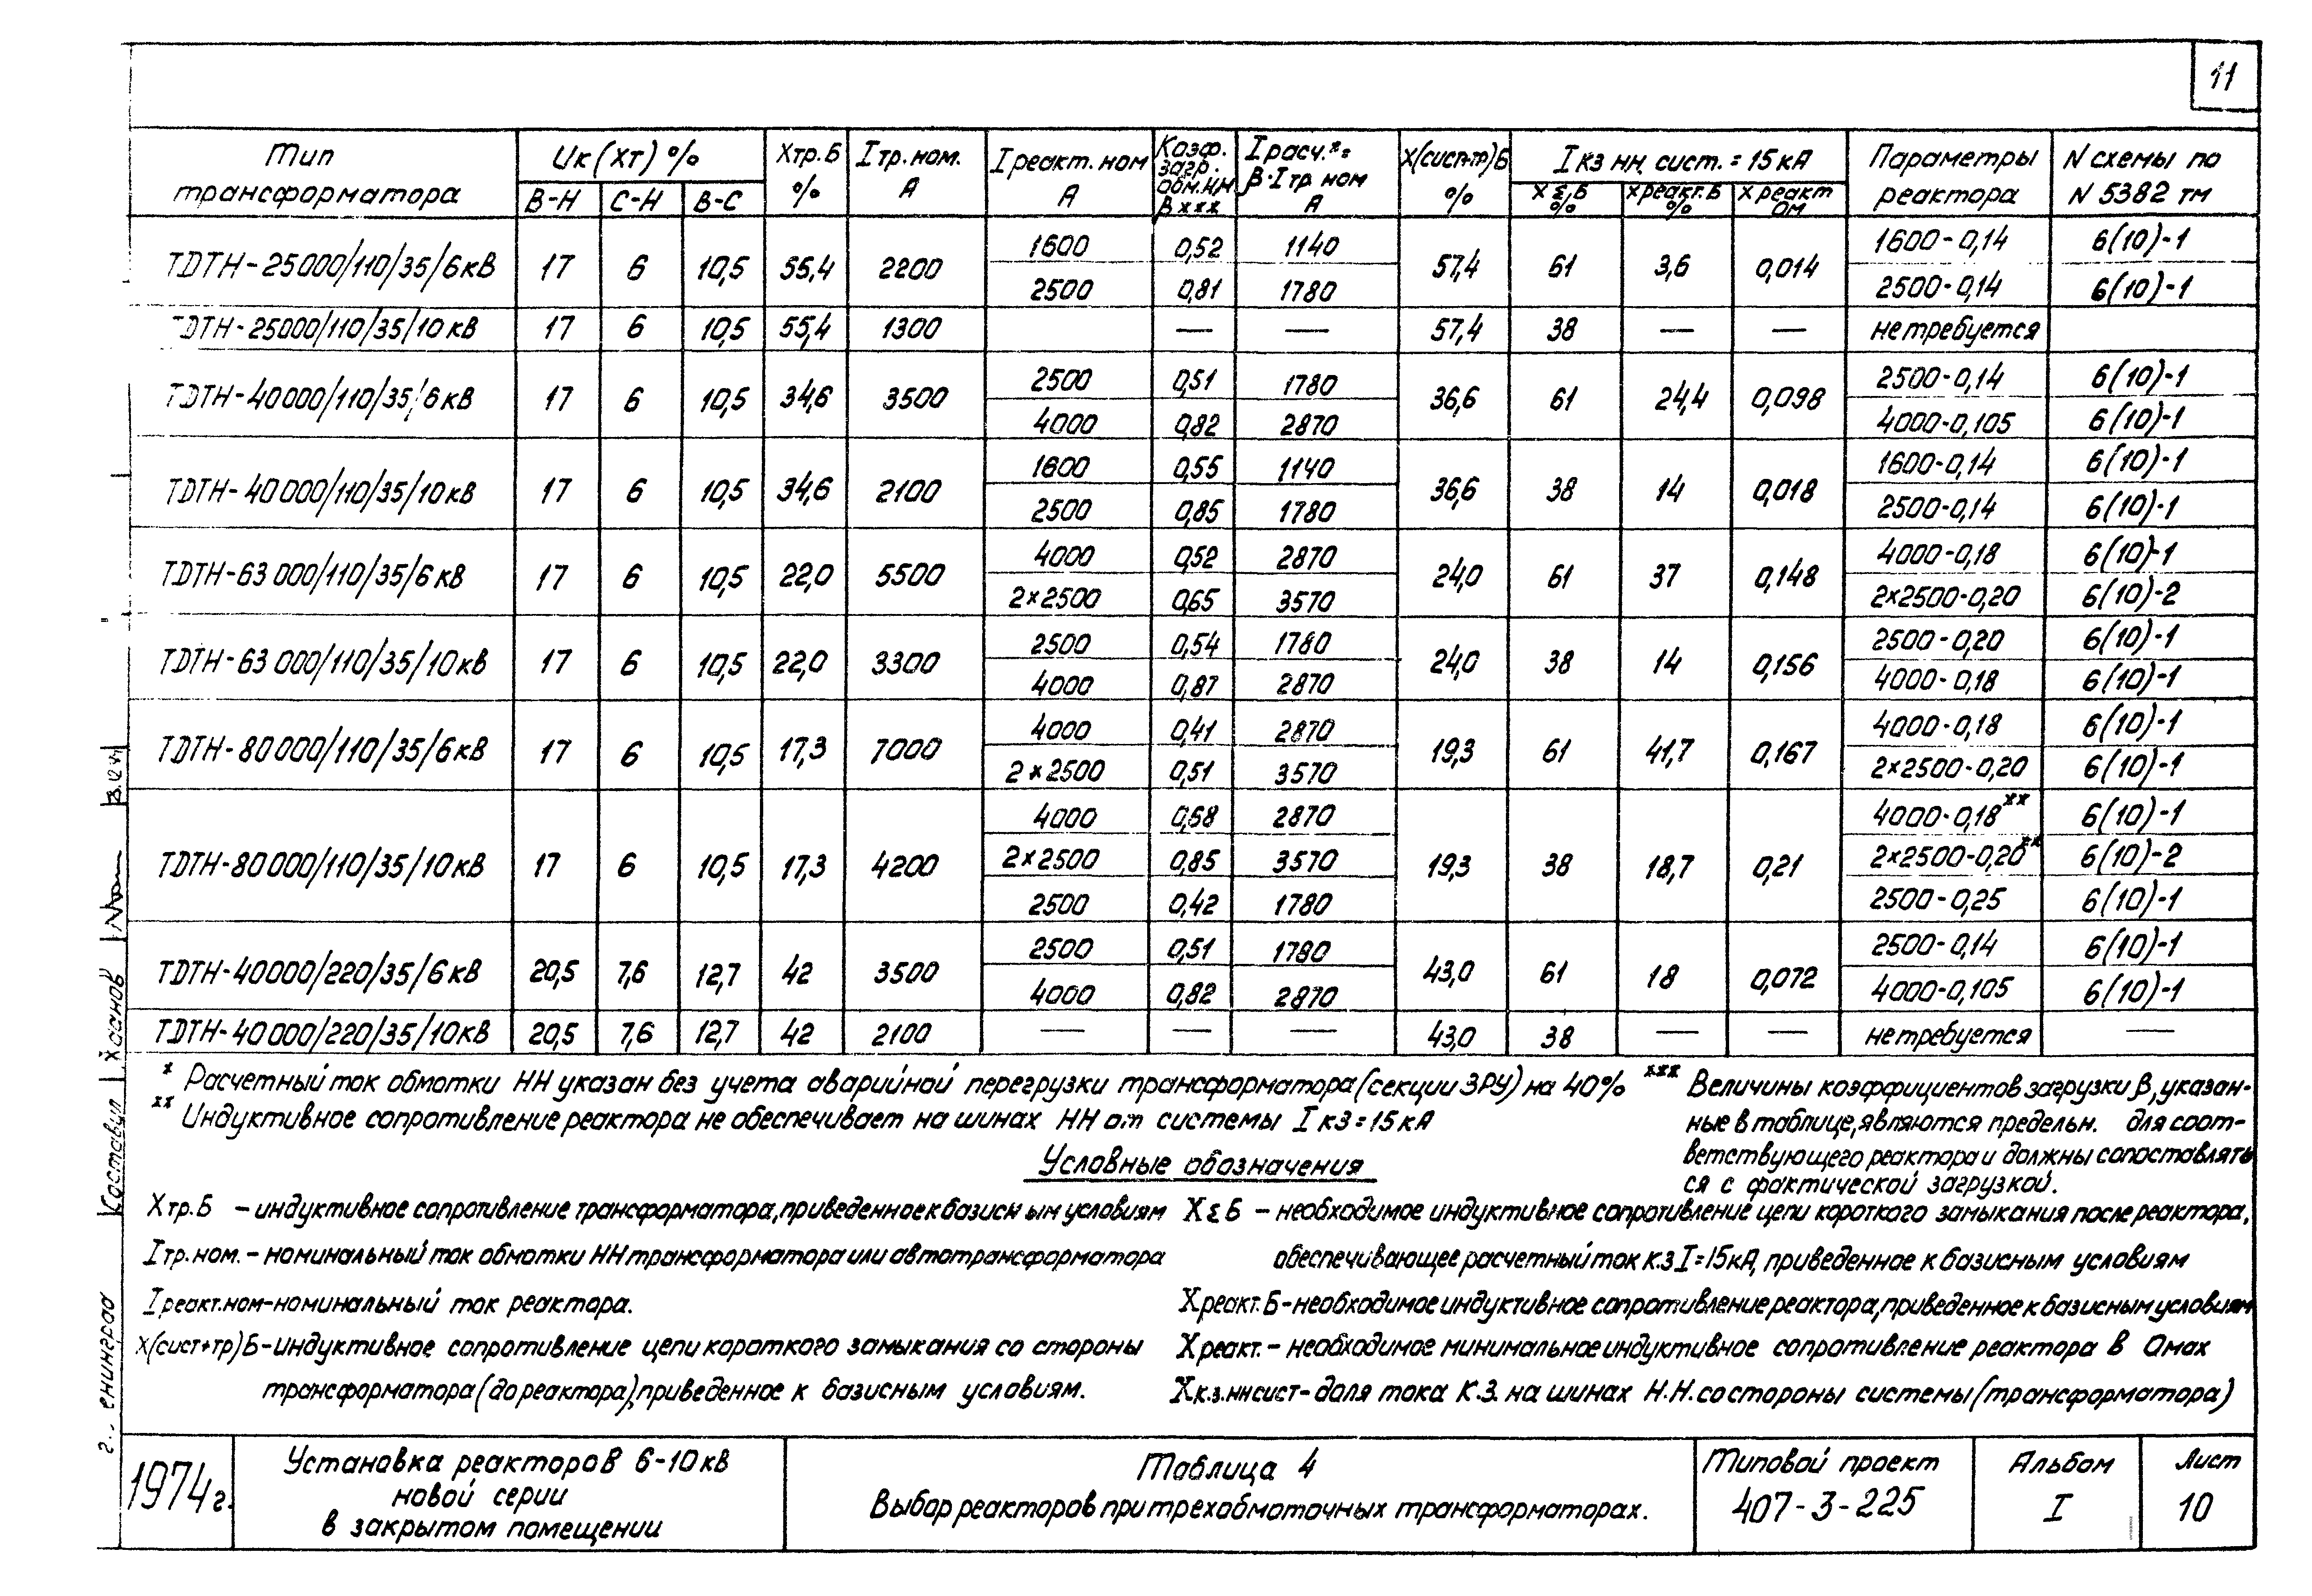 11
Тип трансформатора | Uк (Хт) % | Хтр.Б % | Iтр. ном. А | I реакт. ном А | Коэф. загр. обм. НН β ××× | I расч.*= β·Iтр ном А | Х(сист+тр)Б % | I кз нн. сист. = 15 кА | Параметры реактора | N схемы по N 5382 тм
В-Н | С-Н | В-С | Х Σ,Б % | Х реакт. Б % | Х реакт ом
ТДТН-25000/110/35/6кВ | 17 | 6 | 10,5 | 55,4 | 2200 | 1600 | 0,52 | 1140 | 57,4 | 61 | 3,6 | 0,014 | 1600-0,14 | 6(10)-1
2500 | 0,81 | 1780 | 2500-0,14 | 6(10)-1
ТДТН-25000/110/35/10кВ | 17 | 6 | 10,5 | 55,4 | 1300 | — | — | 57,4 | 38 | — | — | не требуется
ТДТН-40000/110/35/6кВ | 17 | 6 | 10,5 | 34,6 | 3500 | 2500 | 0,51 | 1780 | 36,6 | 61 | 24,4 | 0,098 | 2500-0,14 | 6(10)-1
4000 | 0,82 | 2870 | 4000-0,105 | 6(10)-1
ТДТН-40000/110/35/10кВ | 17 | 6 | 10,5 | 34,6 | 2100 | 1600 | 0,55 | 1140 | 36,6 | 38 | 14 | 0,018 | 1600-0,14 | 6(10)-1
2500 | 0,85 | 1780 | 2500-0,14 | 6(10)-1
ТДТН-63000/110/35/6кВ | 17 | 6 | 10,5 | 22,0 | 5500 | 4000 | 0,52 | 2870 | 24,0 | 61 | 37 | 0,148 | 4000-0,18 | 6(10)-1
2×2500 | 0,65 | 3570 | 2×2500-0,20 | 6(10)-2
ТДТН-63000/110/35/10кВ | 17 | 6 | 10,5 | 22,0 | 3300 | 2500 | 0,54 | 1780 | 24,0 | 38 | 14 | 0,156 | 2500-0,20 | 6(10)-1
4000 | 0,87 | 2870 | 4000-0,18 | 6(10)-1
ТДТН-80000/110/35/6кВ | 17 | 6 | 10,5 | 17,3 | 7000 | 4000 | 0,41 | 2870 | 19,3 | 61 | 41,7 | 0,167 | 4000-0,18 | 6(10)-1
2×2500 | 0,51 | 3570 | 2×2500-0,20 | 6(10)-1
ТДТН-80000/110/35/10кВ | 17 | 6 | 10,5 | 17,3 | 4200 | 4000 | 0,68 | 2870 | 19,3 | 38 | 18,7 | 0,21 | 4000-0,18×× | 6(10)-1
2×2500 | 0,85 | 3570 | 2×2500-0,20×× | 6(10)-2
2500 | 0,42 | 1780 | 2500-0,25 | 6(10)-1
ТДТН-40000/220/35/6кВ | 20,5 | 7,6 | 12,7 | 42 | 3500 | 2500 | 0,51 | 1780 | 43,0 | 61 | 18 | 0,072 | 2500-0,14 | 6(10)-1
4000 | 0,82 | 2870 | 4000-0,105 | 6(10)-1
ТДТН-40000/220/35/10кВ | 20,5 | 7,6 | 12,7 | 42 | 2100 | — | — | — | 43,0 | 38 | — | — | не требуется | —
× Расчетный ток обмотки НН указан без учета аварийной перегрузки трансформатора (секции ЗРУ) на 40%
×× Индуктивное сопротивление реактора не обеспечивает на шинах НН от системы I кз = 15 кА
××× Величины коэффициентов загрузки β, указан-
ные в таблице, являются предельн. для соот-
ветствующего реактора и должны сопоставлять
ся с фактической загрузкой.
Условные обозначения
Хтр.Б – индуктивное сопротивление трансформатора, приведенное к базисным условиям
Iтр.ном. – номинальный ток обмотки НН трансформатора или автотрансформатора
I реакт.ном – номинальный ток реактора.
Х(сист+тр)Б – индуктивное сопротивление цепи короткого замыкания со стороны
трансформатора (до реактора), приведенное к базисным условиям.
Х Σ Б – необходимое индуктивное сопротивление цепи короткого замыкания после реактора,
обеспечивающее расчетный ток к.з I=15кА, приведенное к базисным условиям
Х реакт. Б – необходимое индуктивное сопротивление реактора, приведенное к базисным условиям
Х реакт. – необходимое минимальное индуктивное сопротивление реактора в Омах
Хк.з.нн сист – доля тока К.З. на шинах Н.Н. со стороны системы (трансформатора)
Составил Хасанов
1974г.
Установка реакторов 6-10 кв
новой серии
в закрытом помещении
Таблица 4
Выбор реакторов при трехобмоточных трансформаторах.
Типовой проект
407-3-225
Альбом
I
Лист
10